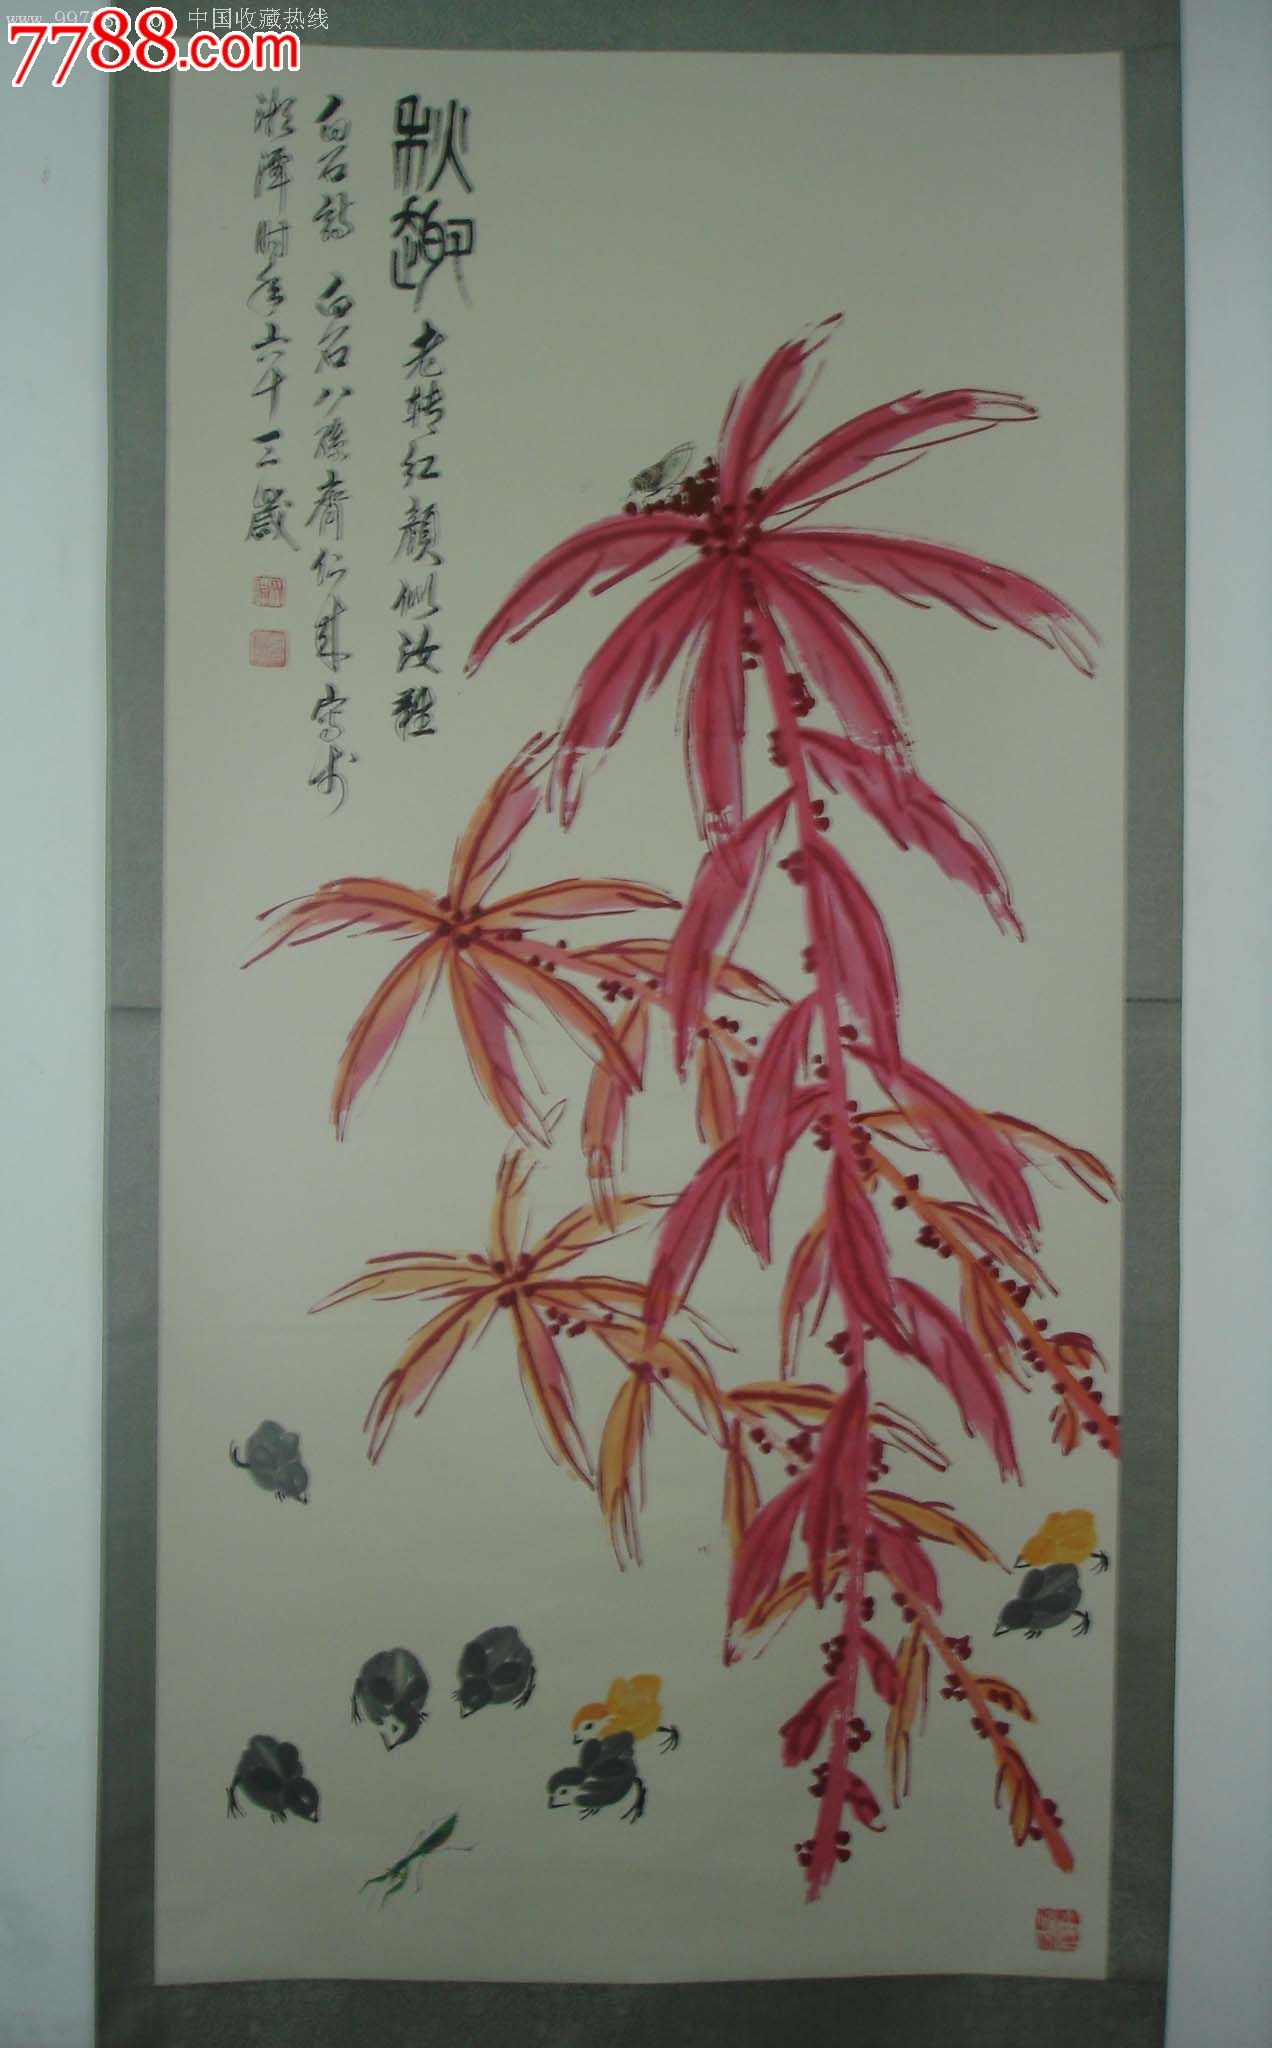 中国收藏热线
7788.com
秋趣
老转红颜似汝难
白石诗 白石八孙齐仁来写于
湘潭时年六十三岁